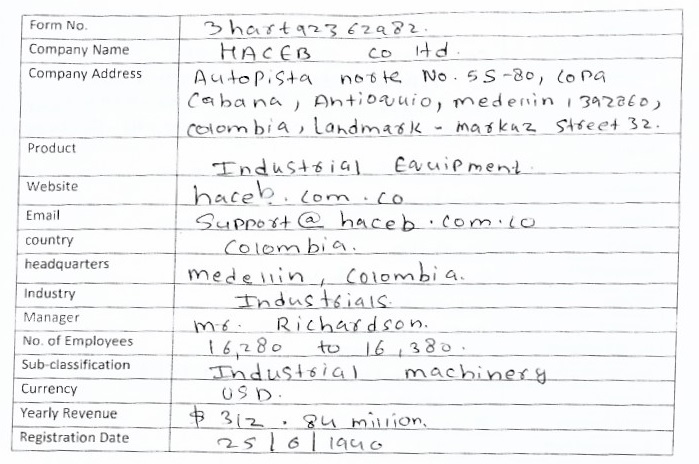 Form No. 3hart92362a82.
Company Name HACEB co ltd.
Company Address Autopista norte No. 5S-80, Copa
Cabana, Antioquio, medellin, 392860,
colombia, Landmark - markaz Street 32.
Product Industrial Equipment.
Website haceb.com.co
Email Support@haceb.com.co
country Colombia.
headquarters medellin, Colombia.
Industry Industrials.
Manager mr. Richardson.
No. of Employees 16,280 to 16,380.
Sub-classification Industrial machinery
Currency USD.
Yearly Revenue $ 312.84 million.
Registration Date 25/6/1940